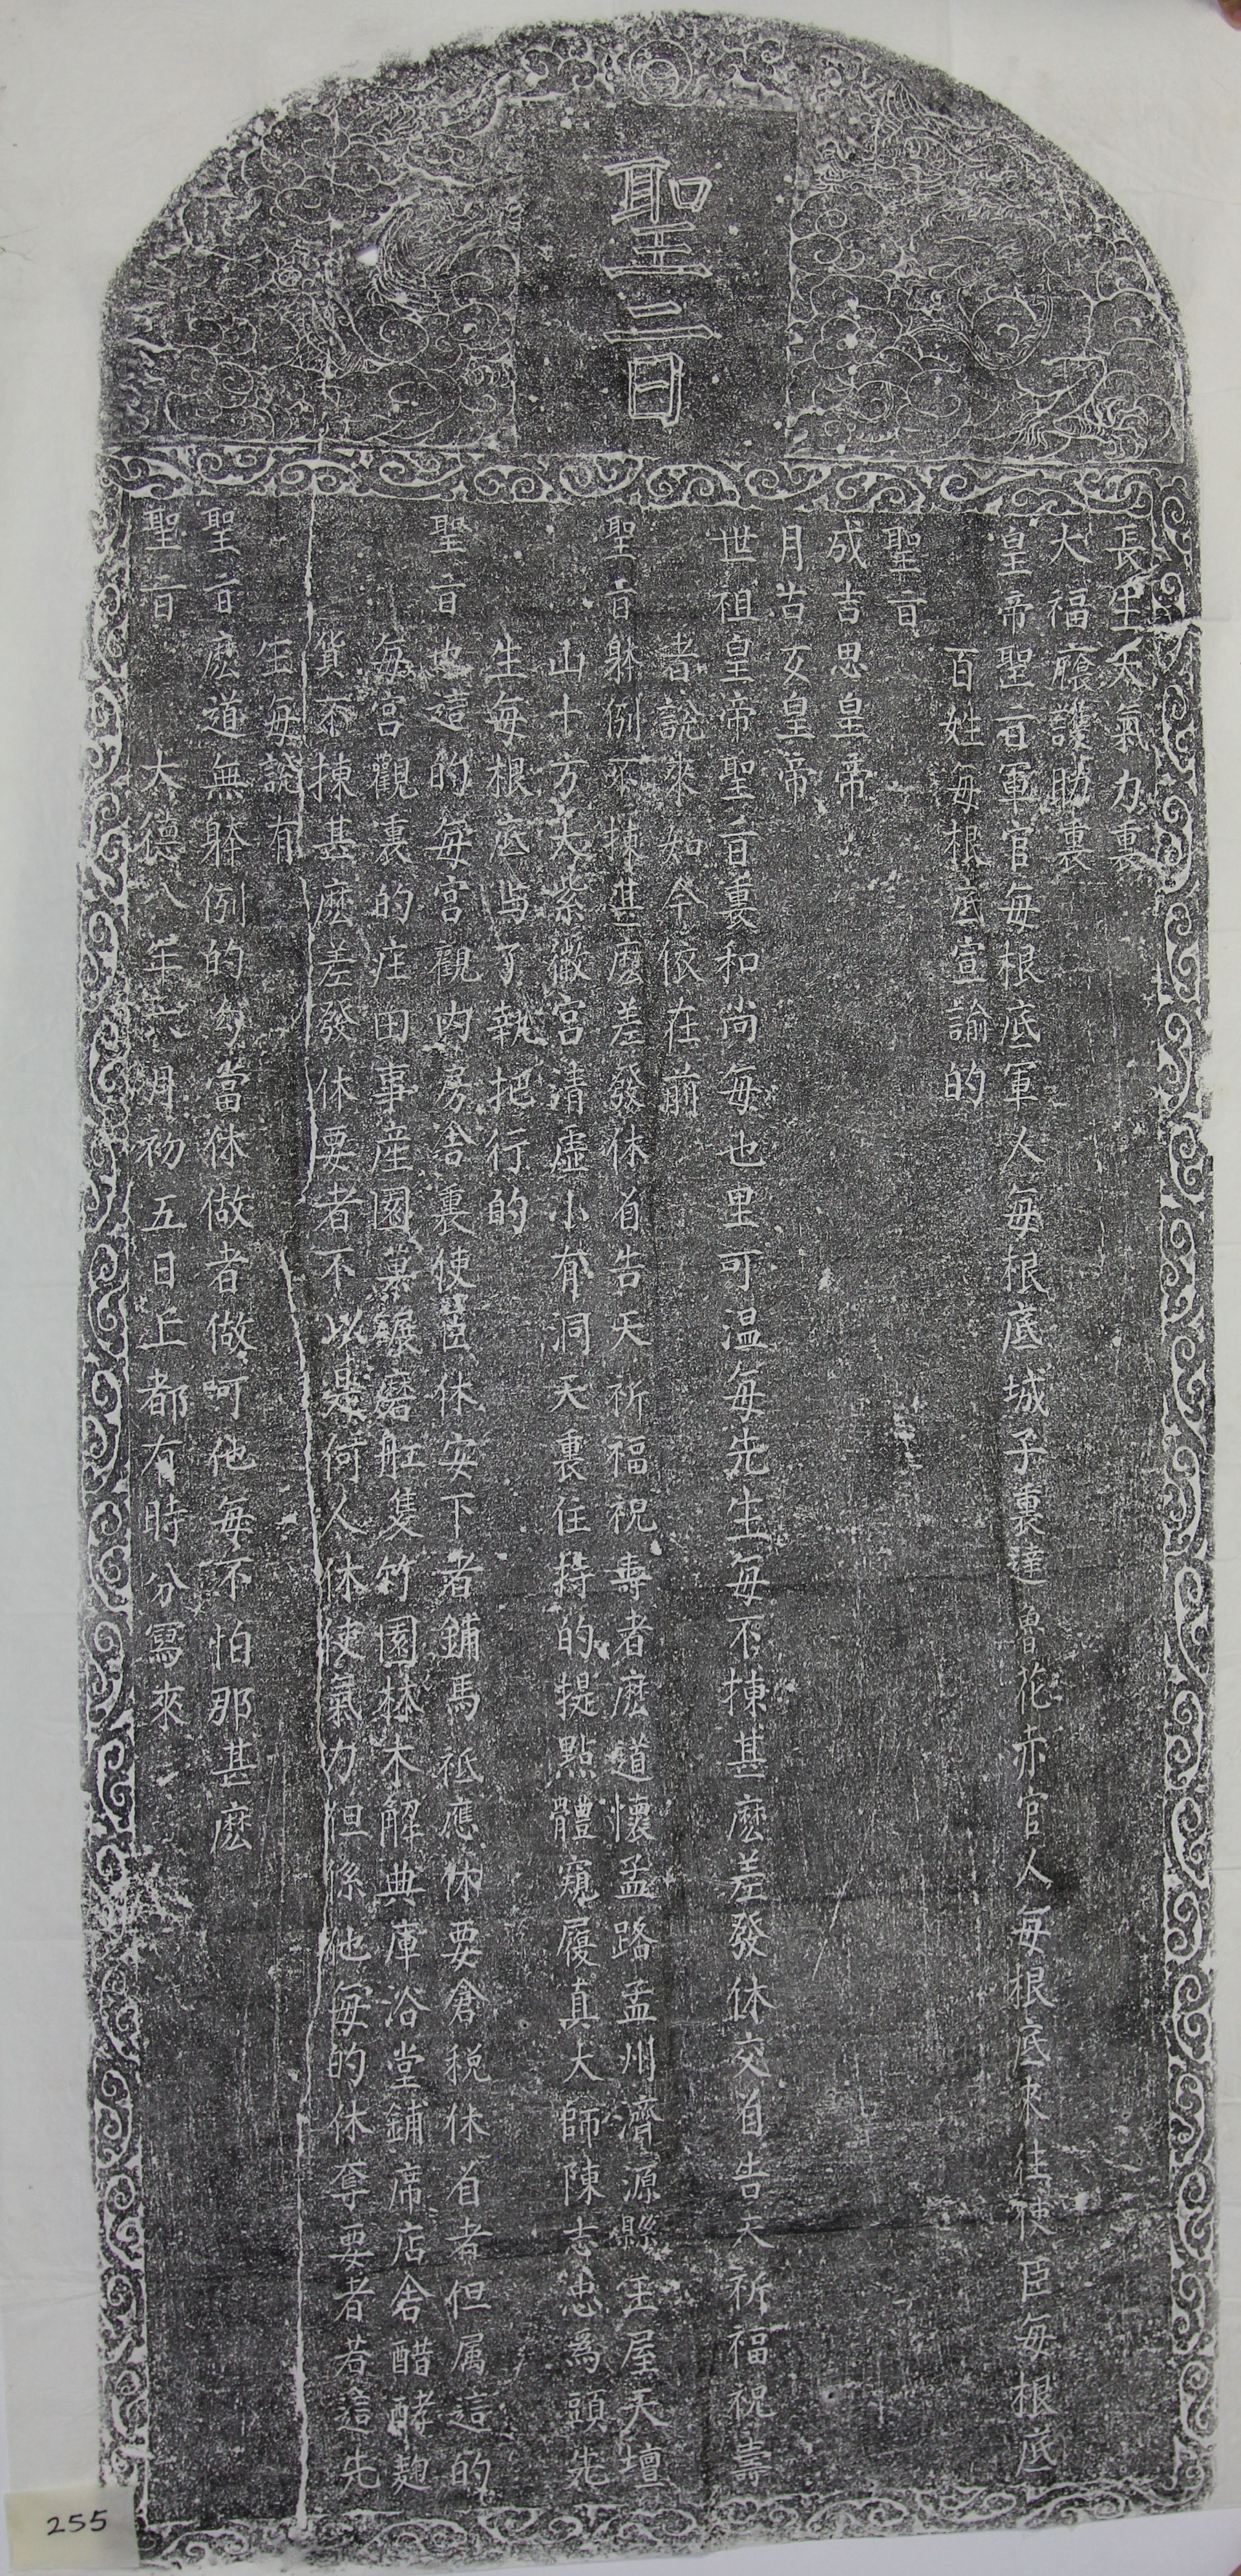 聖旨
長生天氣力裏
大福廕護助裏
皇帝聖旨軍官每根底軍人每根底城子裏達魯花赤官人每根底來往使臣每根底
百姓每根底宣諭的
聖旨
成吉思皇帝
月古歹皇帝
世祖皇帝聖旨裏和尚每也里可温每先生每不揀甚麽差發休交着告天祈福祝壽
者說來如今依在前
聖旨躰例不揀甚麽差發休着告天祈福祝壽者麽道懷孟路孟州濟源縣王屋天壇
山十方大紫微宮清虛小有洞天裏住持的提點體窺履真大師陳志忠爲頭先
生每根底與了執把行的
聖旨也這的每宮觀內房舍裏使臣休安下者鋪馬祗應休要倉稅休着者但属這的
每宮觀裏的庄田事產園菓碾磨舡隻竹園林木解典庫浴堂鋪席店舍醋酵麴
貨不揀甚麽差發休要者不以是何人休使氣力但係他每的休奪要者若這先
生每說有
聖旨麽道無躰例的勾當休做者做呵他每不怕那甚麽
聖旨
大德八年六月初五日上都有時分寫來
255